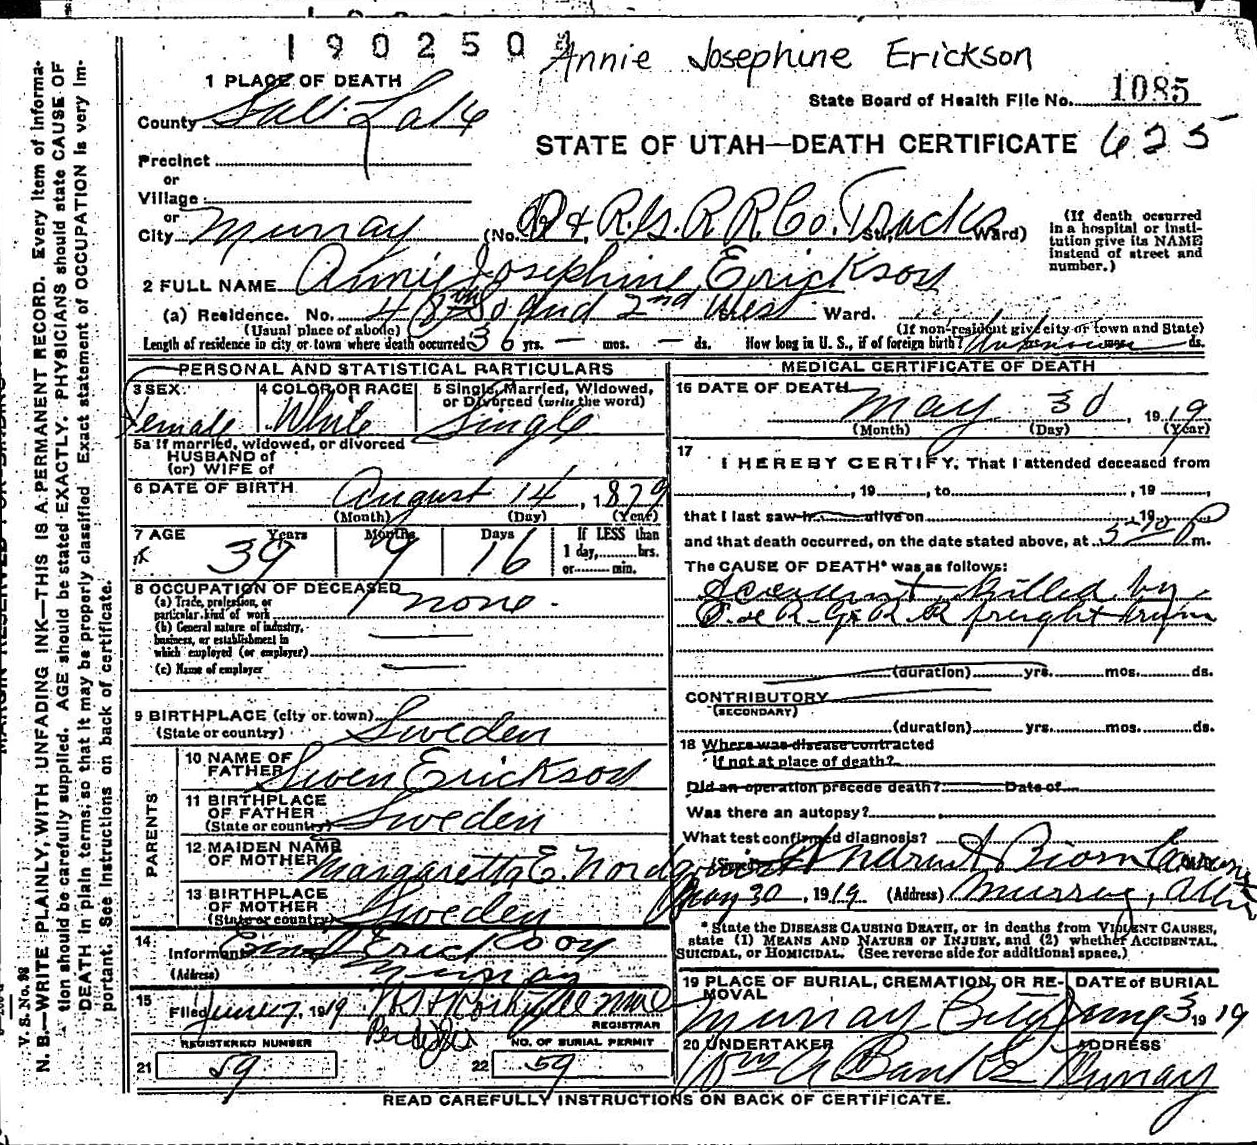 1902504
Annie Josephine Erickson
1 PLACE OF DEATH
State Board of Health File No. 1085
County Salt Lake
STATE OF UTAH—DEATH CERTIFICATE 625
Precinct
or
Village
or
City Murray (No. D & R. G. R R. Co. Tracks St., Ward)
(If death occurred in a hospital or institution give its NAME instead of street and number.)
2 FULL NAME Annie Josephine Erickson
(a) Residence. No. 48th So and 2nd West St., Ward.
(Usual place of abode) (If non-resident give city or town and State)
Length of residence in city or town where death occurred 36 yrs. — mos. — ds. How long in U. S., if of foreign birth? Unknown ds.
PERSONAL AND STATISTICAL PARTICULARS
3 SEX Female
4 COLOR OR RACE White
5 Single, Married, Widowed, or Divorced (write the word) Single
5a If married, widowed, or divorced
HUSBAND of
(or) WIFE of
6 DATE OF BIRTH August 14, 1879
(Month) (Day) (Year)
7 AGE Years Months Days
39 9 16
If LESS than
1 day, hrs.
or min.
8 OCCUPATION OF DECEASED none.
(a) Trade, profession, or
particular kind of work
(b) General nature of industry,
business, or establishment in
which employed (or employer)
(c) Name of employer
9 BIRTHPLACE (city or town)
(State or country) Sweden
PARENTS
10 NAME OF FATHER Swen Erickson
11 BIRTHPLACE OF FATHER
(State or country) Sweden
12 MAIDEN NAME OF MOTHER Margaretta E.
13 BIRTHPLACE OF MOTHER
(State or country) Sweden
14
Informant Erickson
(Address) Murray
15
Filed June 7, 1919
REGISTRAR
REGISTERED NUMBER
21 59
NO. OF BURIAL PERMIT
22 59
MEDICAL CERTIFICATE OF DEATH
16 DATE OF DEATH May 30, 1919
(Month) (Day) (Year)
17
I HEREBY CERTIFY, That I attended deceased from
, 19 , to , 19 ,
that I last saw h alive on , 19
and that death occurred, on the date stated above, at 5-10 P m.
The CAUSE OF DEATH* was as follows:
Accident, killed by
D. & R. G. R. R freight train
(duration) yrs. mos. ds.
CONTRIBUTORY
(SECONDARY)
(duration) yrs. mos. ds.
18 Where was disease contracted
If not at place of death?
Did an operation precede death? Date of
Was there an autopsy?
What test confirmed diagnosis?
(Signed)
May 30, 1919 (Address) Murray, Utah
* State the DISEASE CAUSING DEATH, or in deaths from VIOLENT CAUSES,
state (1) MEANS AND NATURE OF INJURY, and (2) whether ACCIDENTAL,
SUICIDAL, or HOMICIDAL. (See reverse side for additional space.)
19 PLACE OF BURIAL, CREMATION, OR REMOVAL
Murray City
DATE OF BURIAL
June 3 1919
20 UNDERTAKER
Wm A Banks
ADDRESS
Murray
READ CAREFULLY INSTRUCTIONS ON BACK OF CERTIFICATE.
V. S. No. 98
N. B.—WRITE PLAINLY, WITH UNFADING INK—THIS IS A PERMANENT RECORD. Every item of informa-
tion should be carefully supplied. AGE should be stated EXACTLY. PHYSICIANS should state CAUSE OF
DEATH in plain terms, so that it may be properly classified. Exact statement of OCCUPATION is very im-
portant. See instructions on back of certificate.